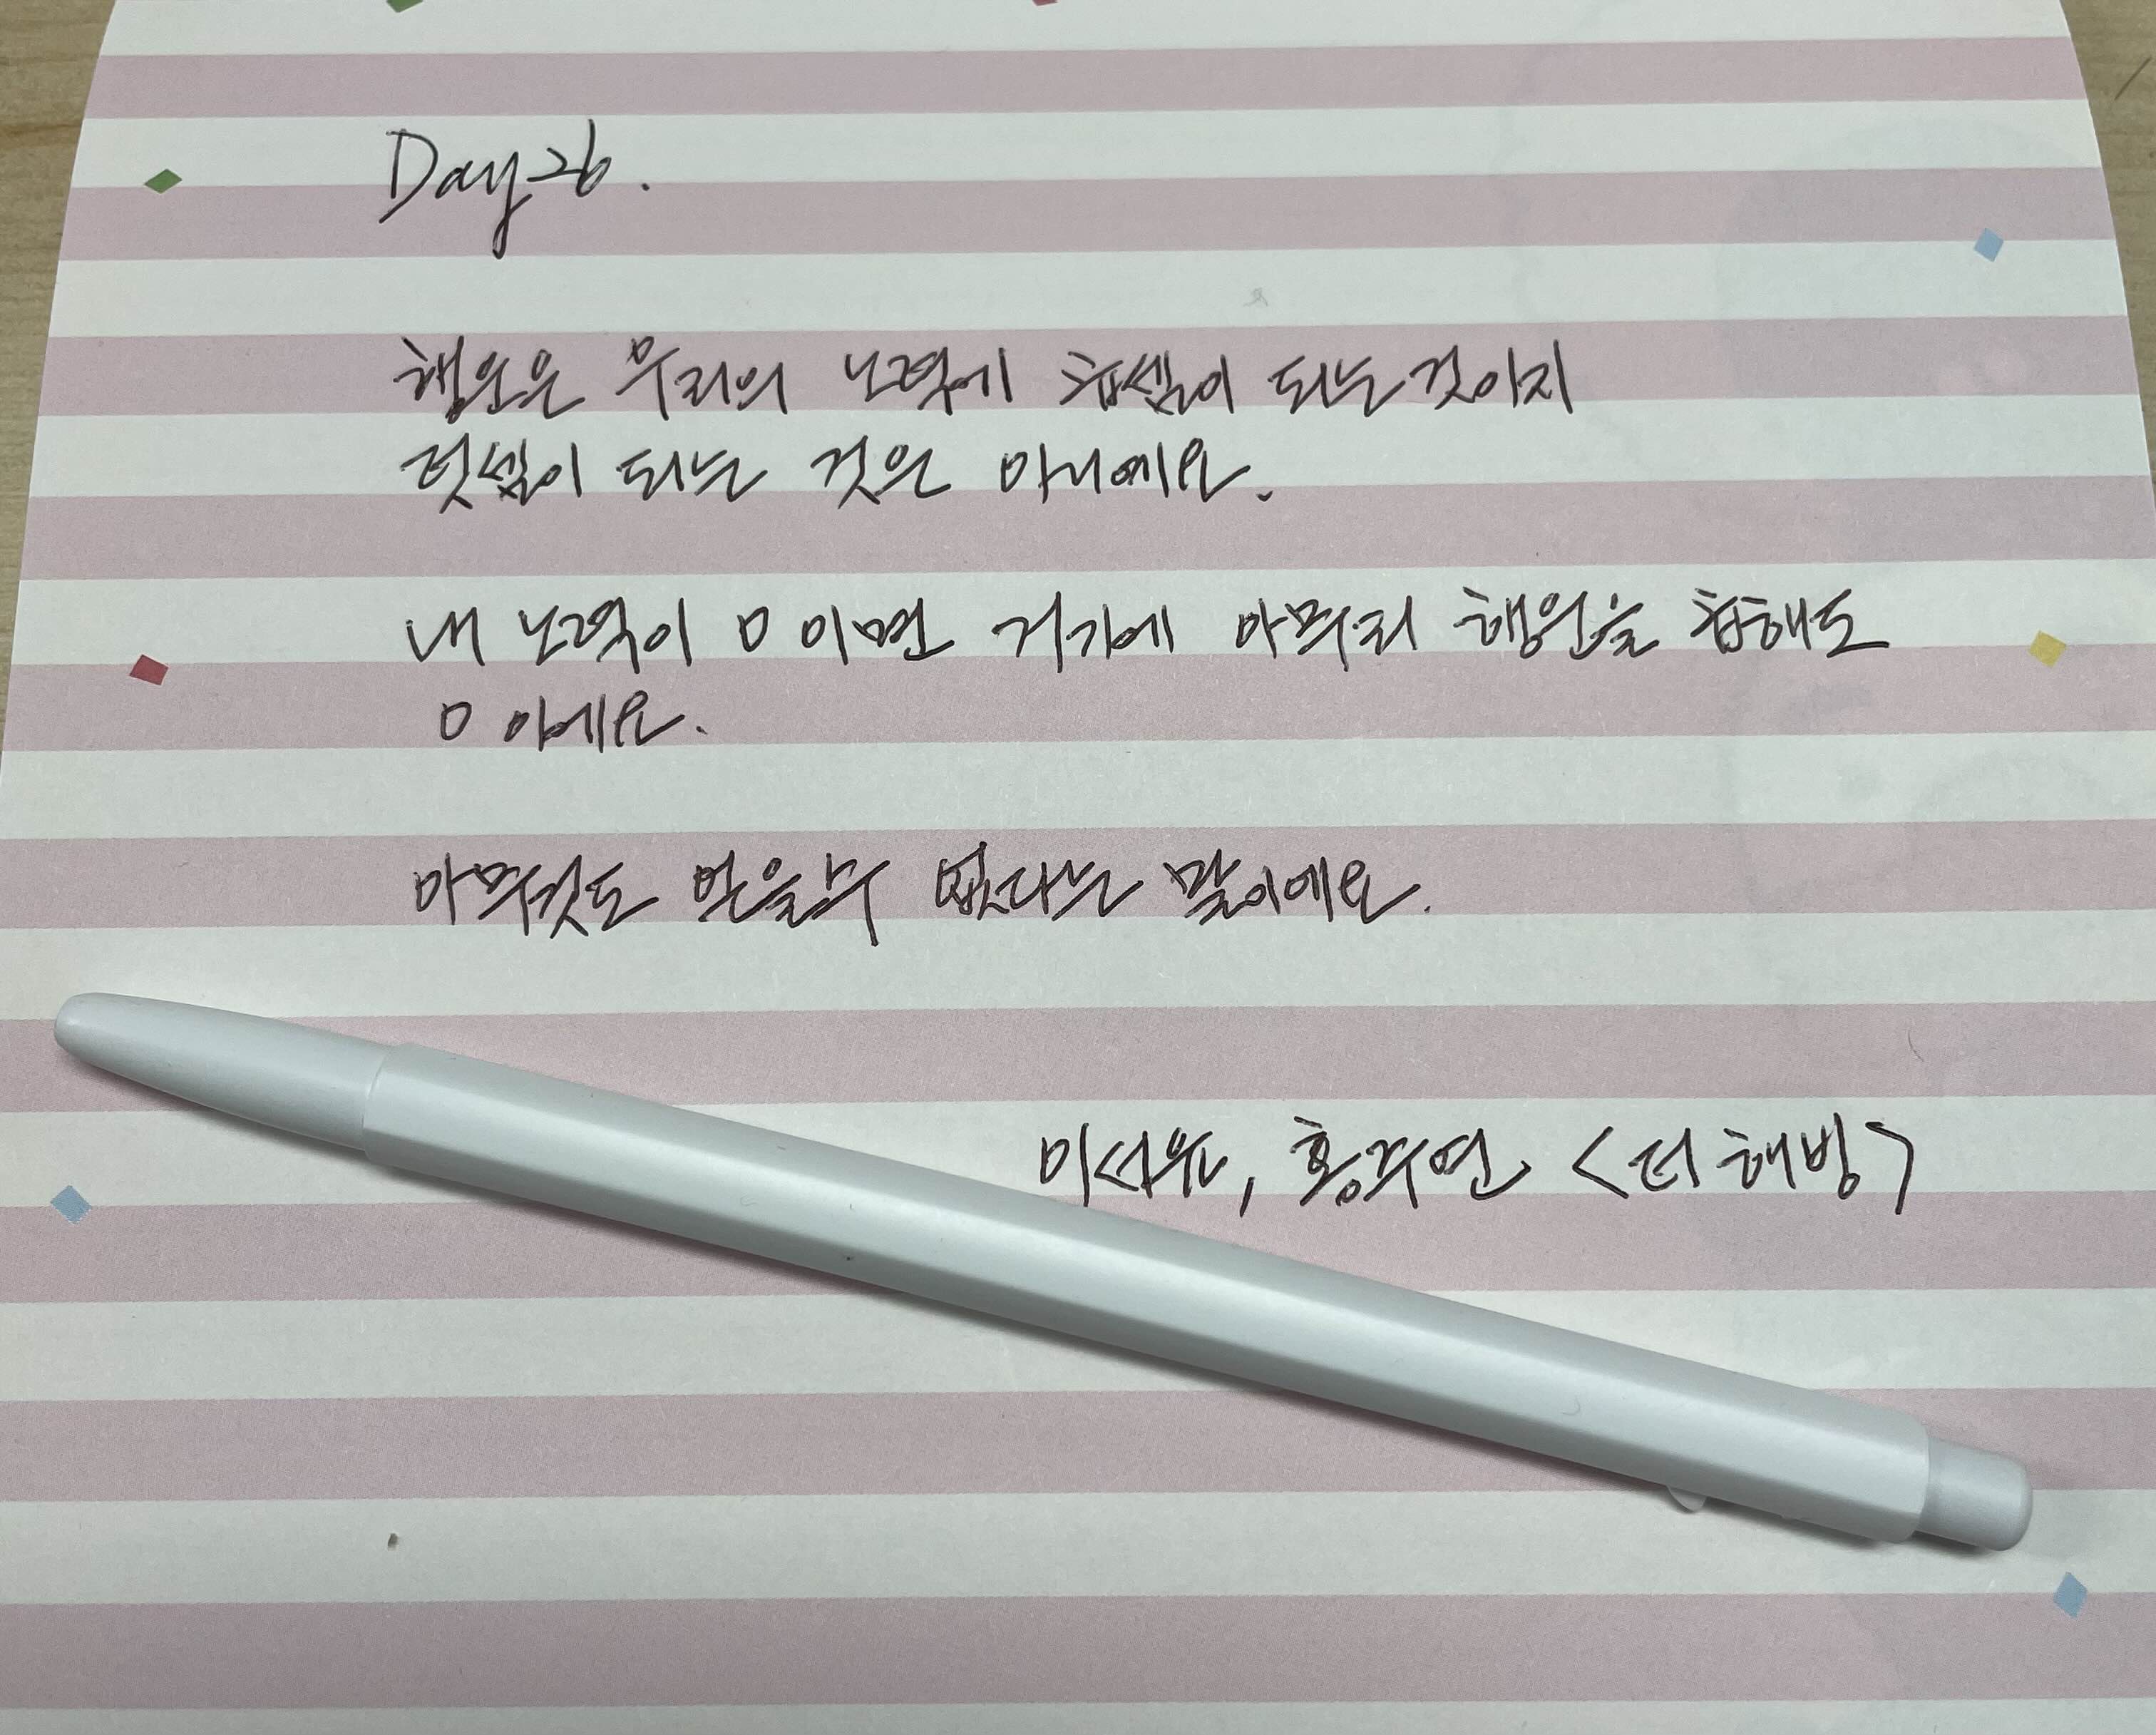 Day 26.
행운은 우리의 노력에 되는것이지
덧셈이 되는 것은 아니에요.
내 노력이 0 이면 거기에 아무리 행운을
0 이에요.
아무것도 얻을수 없다는 말이에요.
이서윤, 홍주연 <더 해빙>